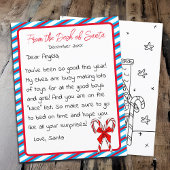 From the Desk of Santa
December 20XX
Dear Angela,
You've been so good this year!
My elves are busy making lots
of toys for all the good boys
and girls! And you are on the
"nice" list. So make sure to go
to bed on time and hope you
like all your surprises!
Love, Santa